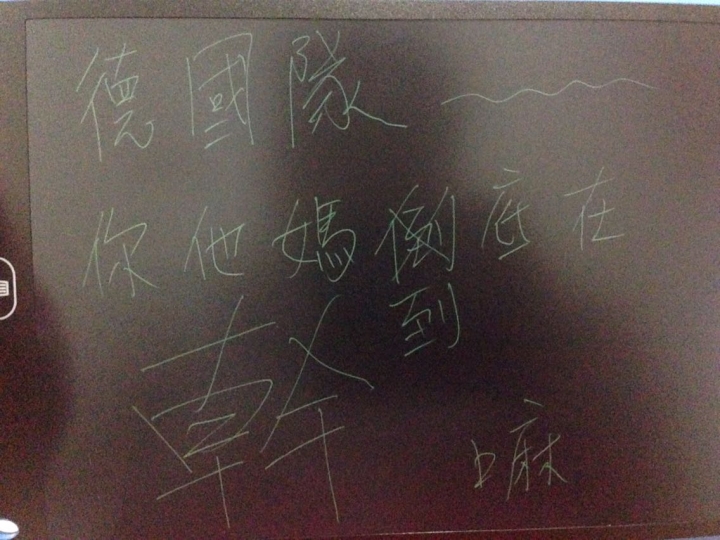 德國隊
你他媽倒底在
到
幹 嘛